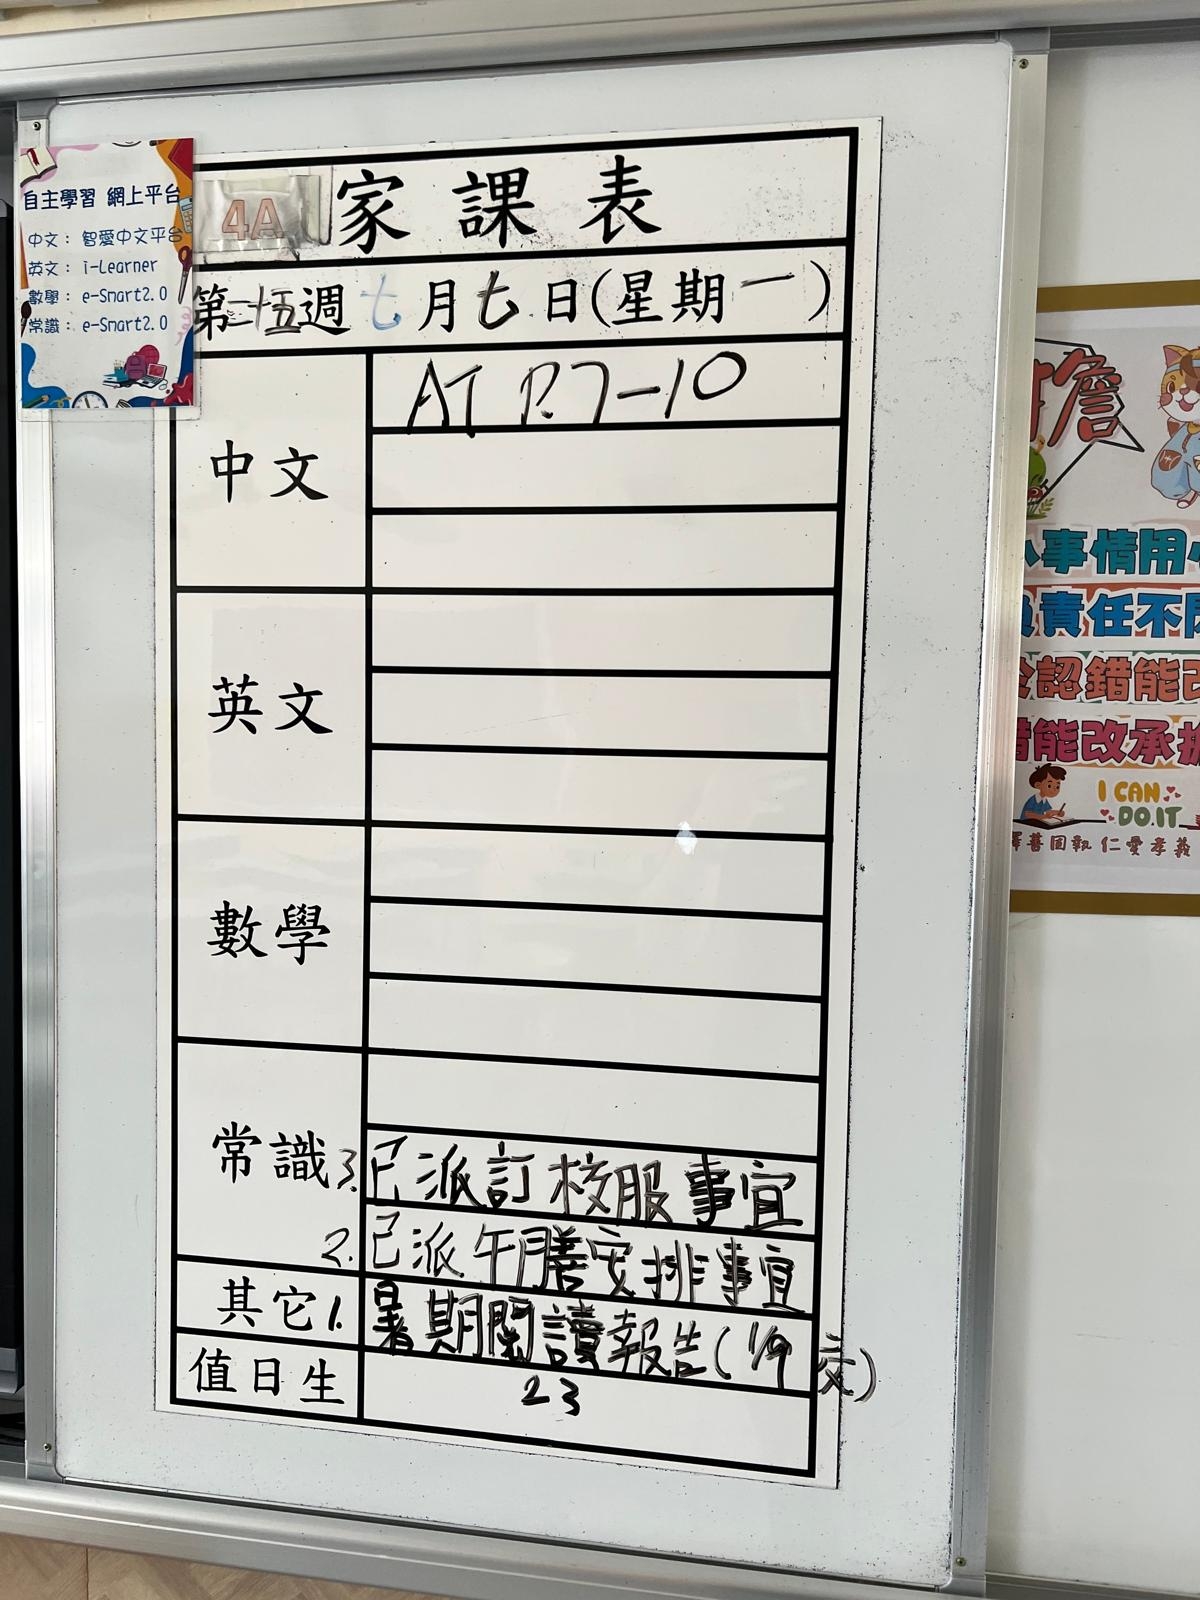 自主學習 網上平台
中文： 智愛中文平台
英文： i-Learner
數學： e-Smart2.0
常識： e-Smart2.0
4A 家課表
第二十五週七月七日(星期一)
中文
AT P.7-10
英文
數學
常識
3. 已派訂校服事宜
2. 已派午膳安排事宜
其它 1. 暑期閱讀報告(1/9交)
值日生 23
事情用心
負責任不
認錯能改
錯能改承擔
I CAN
DO.IT
擇善固執 仁愛孝義